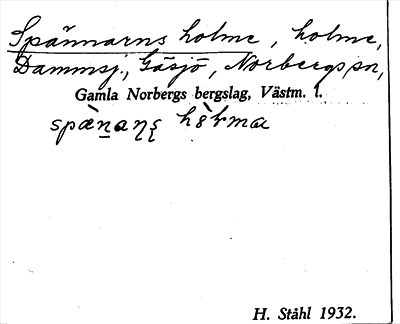 Spännarns holme, holme,
Dammsj., Gåsjö, Norbergs sn,
Gamla Norbergs bergslag, Västm. l.
H. Ståhl 1932.